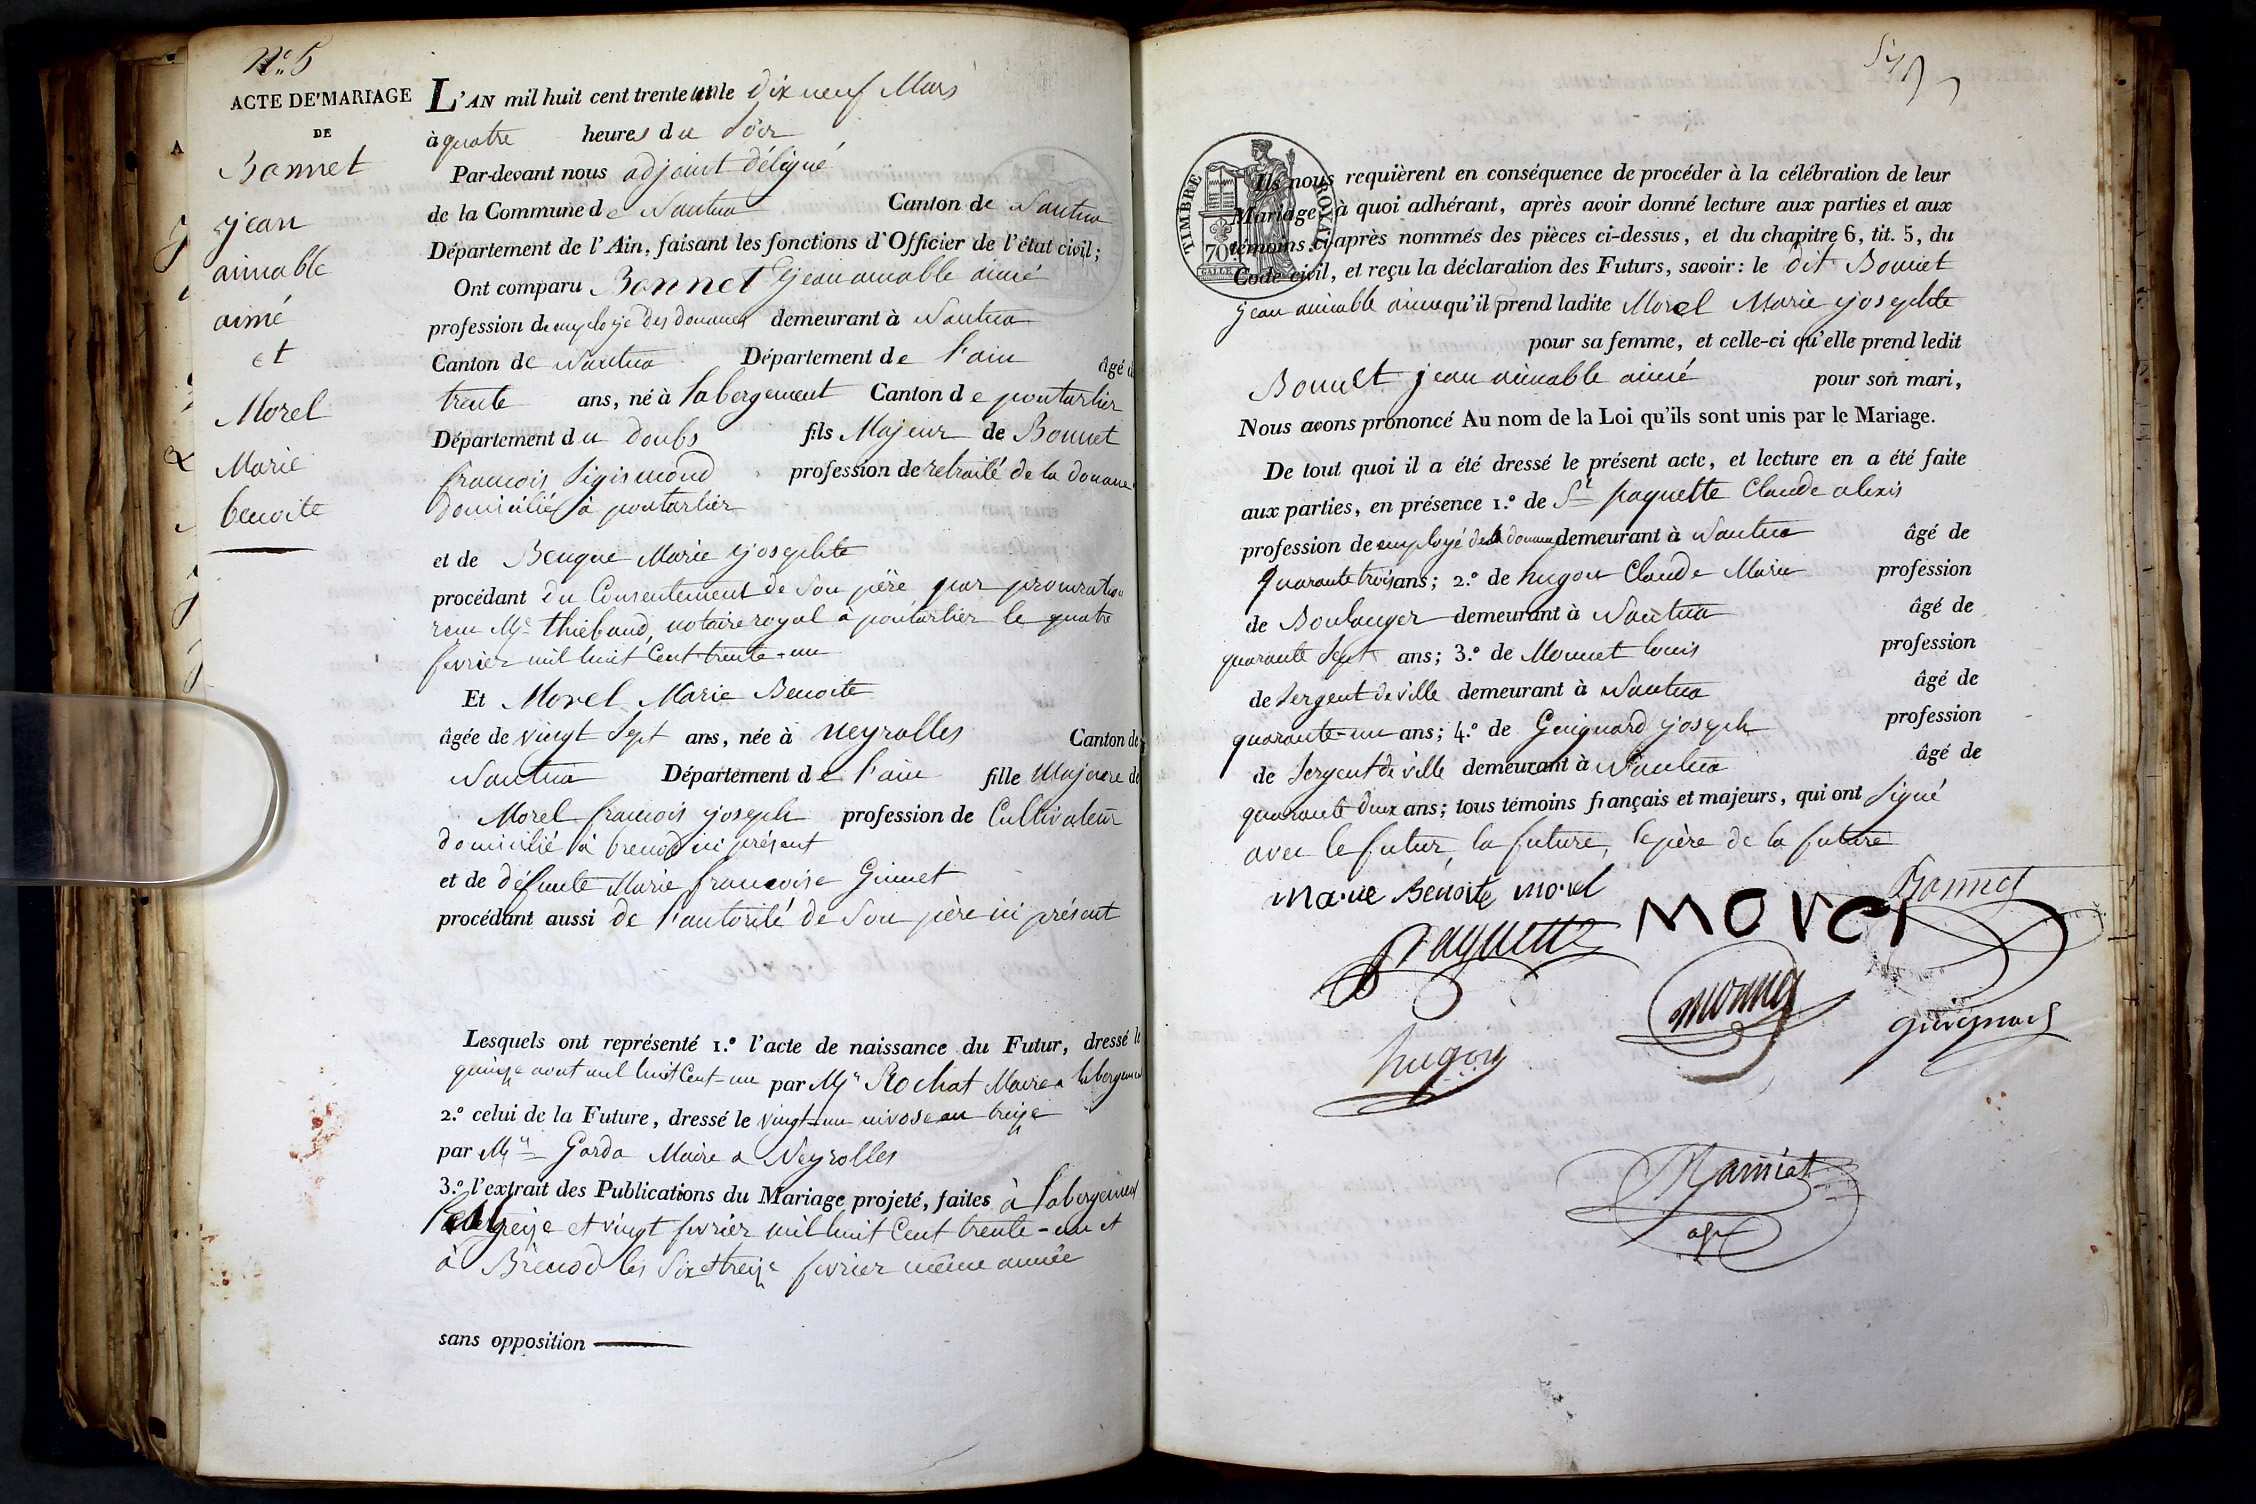 N.° 5
ACTE DE MARIAGE
DE
Bonnet
jean
aimable
aimé
et
Morel
Marie
benoite
L'AN mil huit cent trente un le dix neuf Mars
à quatre heures du Soir
Par-devant nous adjoint délégué
de la Commune de Nantua Canton de Nantua
Département de l'Ain, faisant les fonctions d'Officier de l'état civil;
Ont comparu Bonnet jean aimable aimé
profession d'employé des douanes demeurant à Nantua
Canton de Nantua Département de l'ain âgé de
trente ans, né à labergement Canton de pontarlier
Département du doubs fils Majeur de Bonnet
francois Sigismond profession de retraité de la douane
domicilié à pontarlier
et de Beuque Marie josephte
procédant du Consentement de Son père par procuration
recue Me thiebaud, notaire royal à pontarlier le quatre
fevrier mil huit Cent trente-un
Et Morel Marie Benoite
âgée de vingt Sept ans, née à neyrolles Canton de
Nantua Département de l'ain fille Majeure de
Morel francois joseph profession de Cultivateur
domicilié à brenod ici présent
et de défunte Marie francoise Guinet
procédant aussi de l'autorité de Son père ici présent
Lesquels ont représenté 1.° l'acte de naissance du Futur, dressé le
quinze aout mil huit Cent-un par Mr Rochat Maire a labergement
2.° celui de la Future, dressé le vingt-un nivose an treize
par Mr Garda Maire a Neyrolles
3.° l'extrait des Publications du Mariage projeté, faites à labergement
treize et vingt fevrier mil huit Cent trente-un et
à Brénod les Six et treize fevrier même année
sans opposition
TIMBRE ROYAL
70
Ils nous requièrent en conséquence de procéder à la célébration de leur
Mariage, à quoi adhérant, après avoir donné lecture aux parties et aux
témoins ci-après nommés des pièces ci-dessus, et du chapitre 6, tit. 5, du
Code civil, et reçu la déclaration des Futurs, savoir: le dit Bonnet
jean aimable aimé qu'il prend ladite Morel Marie josephte
pour sa femme, et celle-ci qu'elle prend ledit
Bonnet jean aimable aimé pour son mari,
Nous avons prononcé Au nom de la Loi qu'ils sont unis par le Mariage.
De tout quoi il a été dressé le présent acte, et lecture en a été faite
aux parties, en présence 1.° de Sr paquette Claude alexis
profession de employé de la douane demeurant à Nantua âgé de
quarante trois ans; 2.° de hugon Claude Marie profession
de Boulanger demeurant à Nantua âgé de
quarante Sept ans; 3.° de Monnet louis profession
de Sergent de ville demeurant à Nantua âgé de
quarante-un ans; 4.° de Guignard joseph profession
de Sergent de ville demeurant à Nantua âgé de
quarante deux ans; tous témoins français et majeurs, qui ont Signé
avec le futur, la future, le père de la future
Marie Benoite morel
MOREl
Bonnet
Paquette
monnet
guignard
hugon